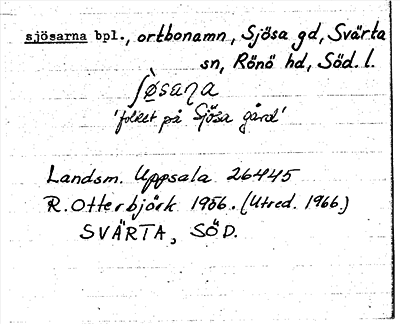 sjösarna bpl., ortbonamn, Sjösa gd, Svärta
sn, Rönö hd, Söd. l.
ʃø̀saɳa
'folket på Sjösa gård'
Landsm. Uppsala 26445
R. Otterbjörk 1956. (Utred. 1966.)
SVÄRTA, SÖD.